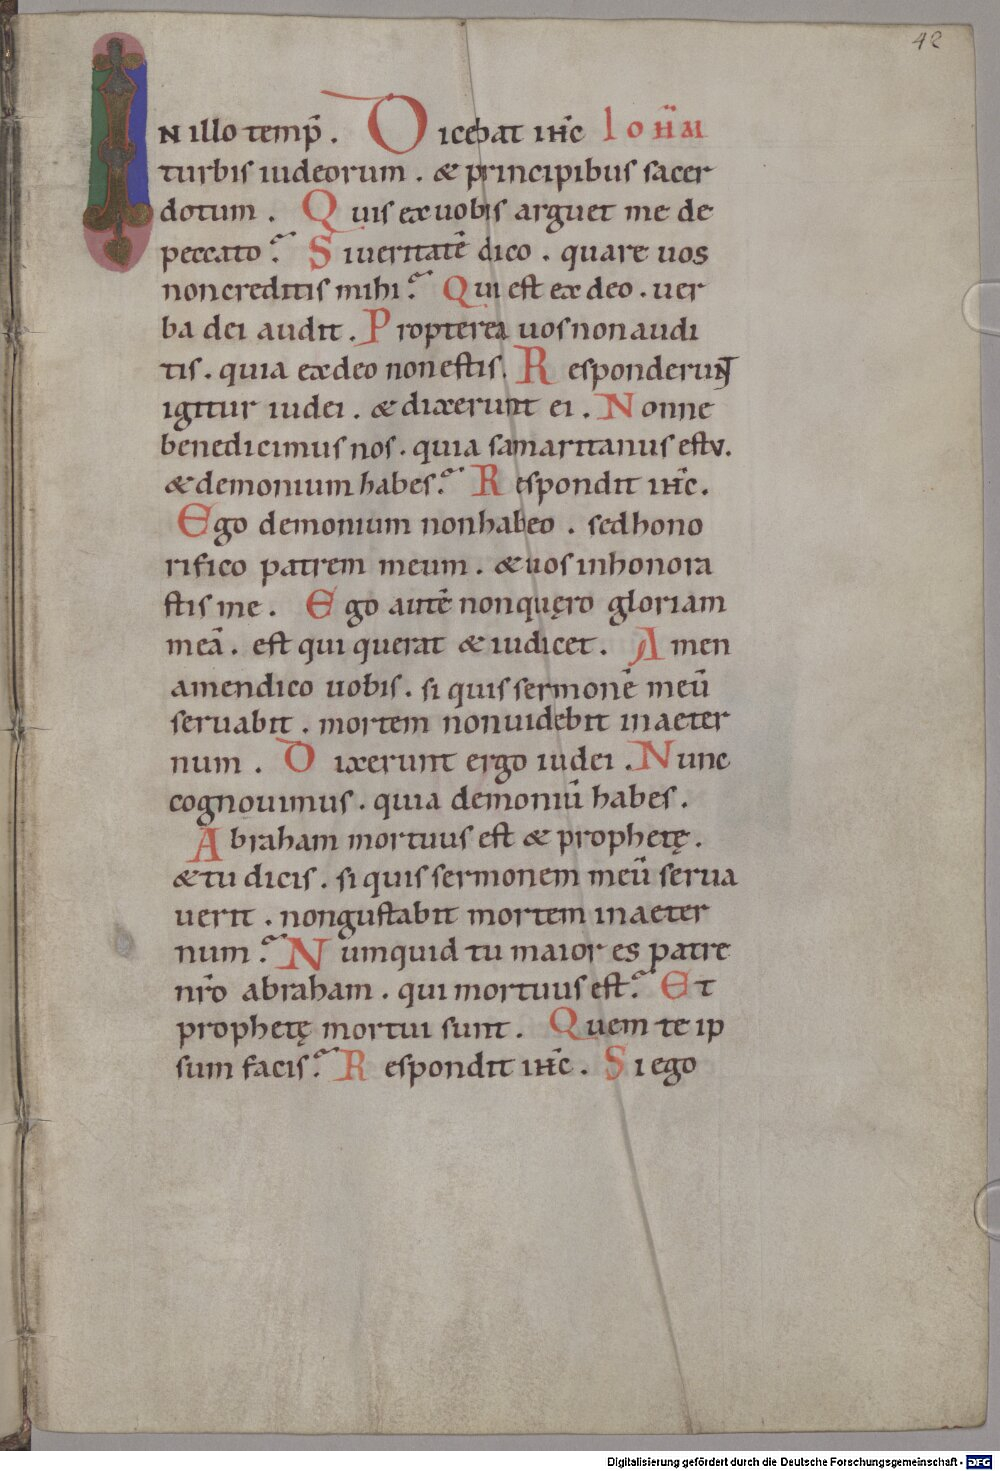 42
IN illo temp̅. Dicebat ih̅c Ioh̅m
turbis iudeorum. & principibus sacer
dotum. Quis ex uobis arguet me de
peccato? Si ueritatē dico. quare uos
non creditis mihi? Qui est ex deo. uer
ba dei audit. Propterea uos non audi
tis. quia ex deo non estis. Responderunt
igitur iudei. & dixerunt ei. Nonne
benedicimus nos. quia samaritanus es tu.
& demonium habes? Respondit ih̅c.
Ego demonium non habeo. sed hono
rifico patrem meum. & uos inhonora
stis me. Ego autē non quęro gloriam
meā. est qui querat & iudicet. Amen
amen dico uobis. si quis sermonē meū
seruabit. mortem non uidebit in aeter
num. Dixerunt ergo iudei. Nunc
cognouimus. quia demoniū habes.
Abraham mortuus est & prophetę.
& tu dicis. si quis sermonem meū serua
uerit. non gustabit mortem in aeter
num? Numquid tu maior es patre
nr̅o abraham. qui mortuus est? Et
prophetę mortui sunt. Quem te ip
sum facis? Respondit ih̅c. Si ego
Digitalisierung gefördert durch die Deutsche Forschungsgemeinschaft - DFG